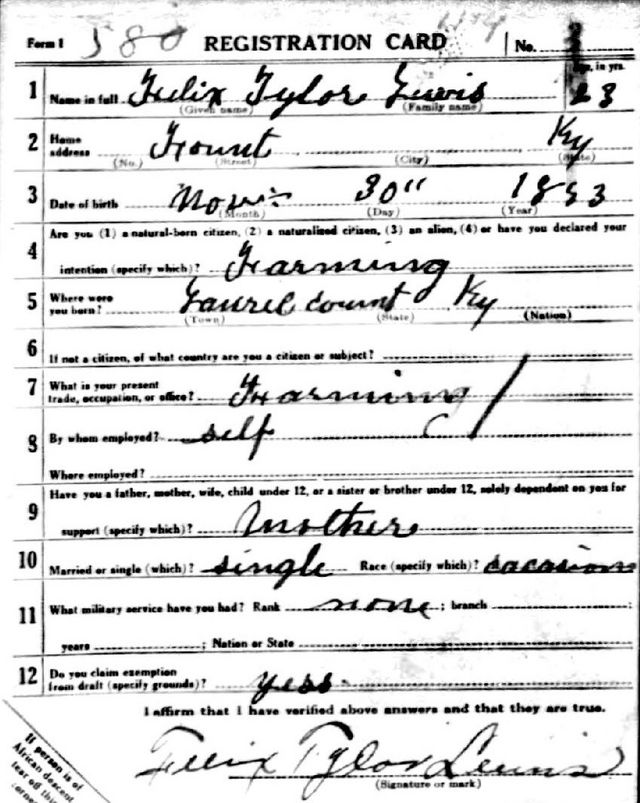 Form 1 580 REGISTRATION CARD No.
1 Name in full Felix Tylor Lewis Age, in yrs. 23
(Given name) (Family name)
2 Home address Fount Ky
(No.) (Street) (City) (State)
3 Date of birth Nov 30" 1893
(Month) (Day) (Year)
4 Are you (1) a natural-born citizen, (2) a naturalized citizen, (3) an alien, (4) or have you declared your
intention (specify which)? Farming
5 Where were you born? Laurel count Ky
(Town) (State) (Nation)
6 If not a citizen, of what country are you a citizen or subject?
7 What is your present trade, occupation, or office? Farming
8 By whom employed? self
Where employed?
9 Have you a father, mother, wife, child under 12, or a sister or brother under 12, solely dependent on you for
support (specify which)? Mother
10 Married or single (which)? single Race (specify which)? cacasion
11 What military service have you had? Rank none ; branch ;
years ; Nation or State
12 Do you claim exemption from draft (specify grounds)? yess
I affirm that I have verified above answers and that they are true.
Felix Tylor Lewis
(Signature or mark)
If person is of
African descent
tear off this
corner